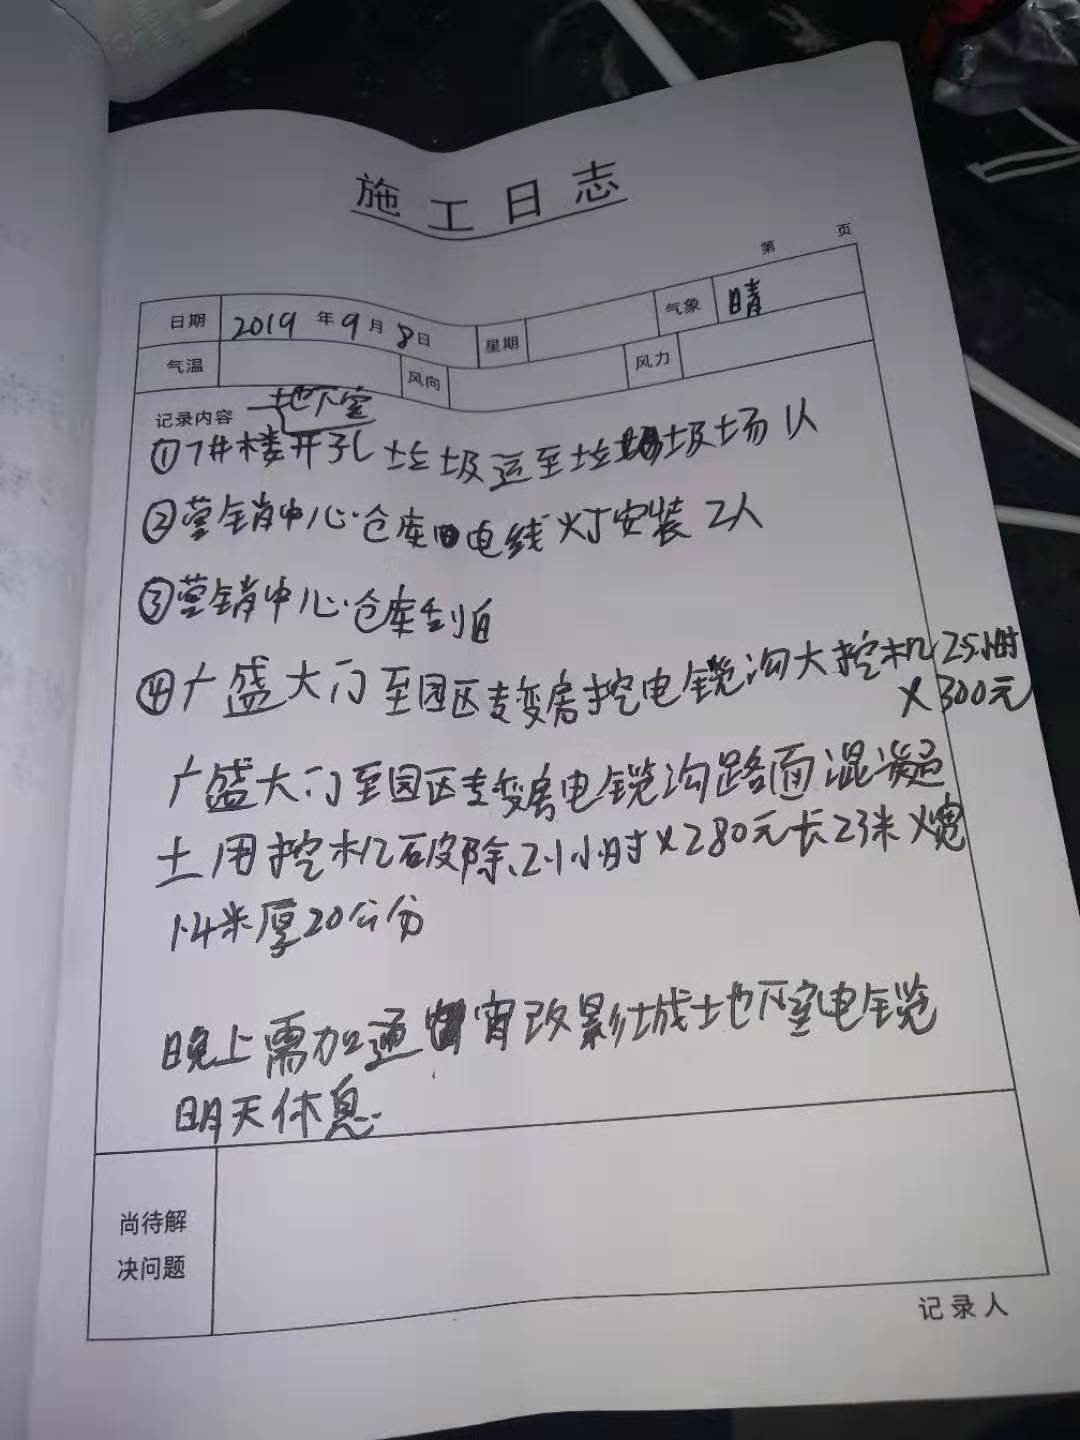 施工日志
第 页
日期 2019年9月8日 星期 气象 晴
气温 风向 风力
记录内容 地下室
①7#楼开孔垃圾运至垃圾场1人
②营销中心仓库电线灯安装2人
③营销中心仓库刮白
④广盛大门至园区专变房挖电缆沟大挖机2.5小时
×300元
广盛大门至园区专变房电缆沟路面混凝
土用挖机破除、2小时×280元长23米×宽
1.4米厚20公分
晚上需加通宵改影城地下室电缆
明天休息.
尚待解
决问题
记录人